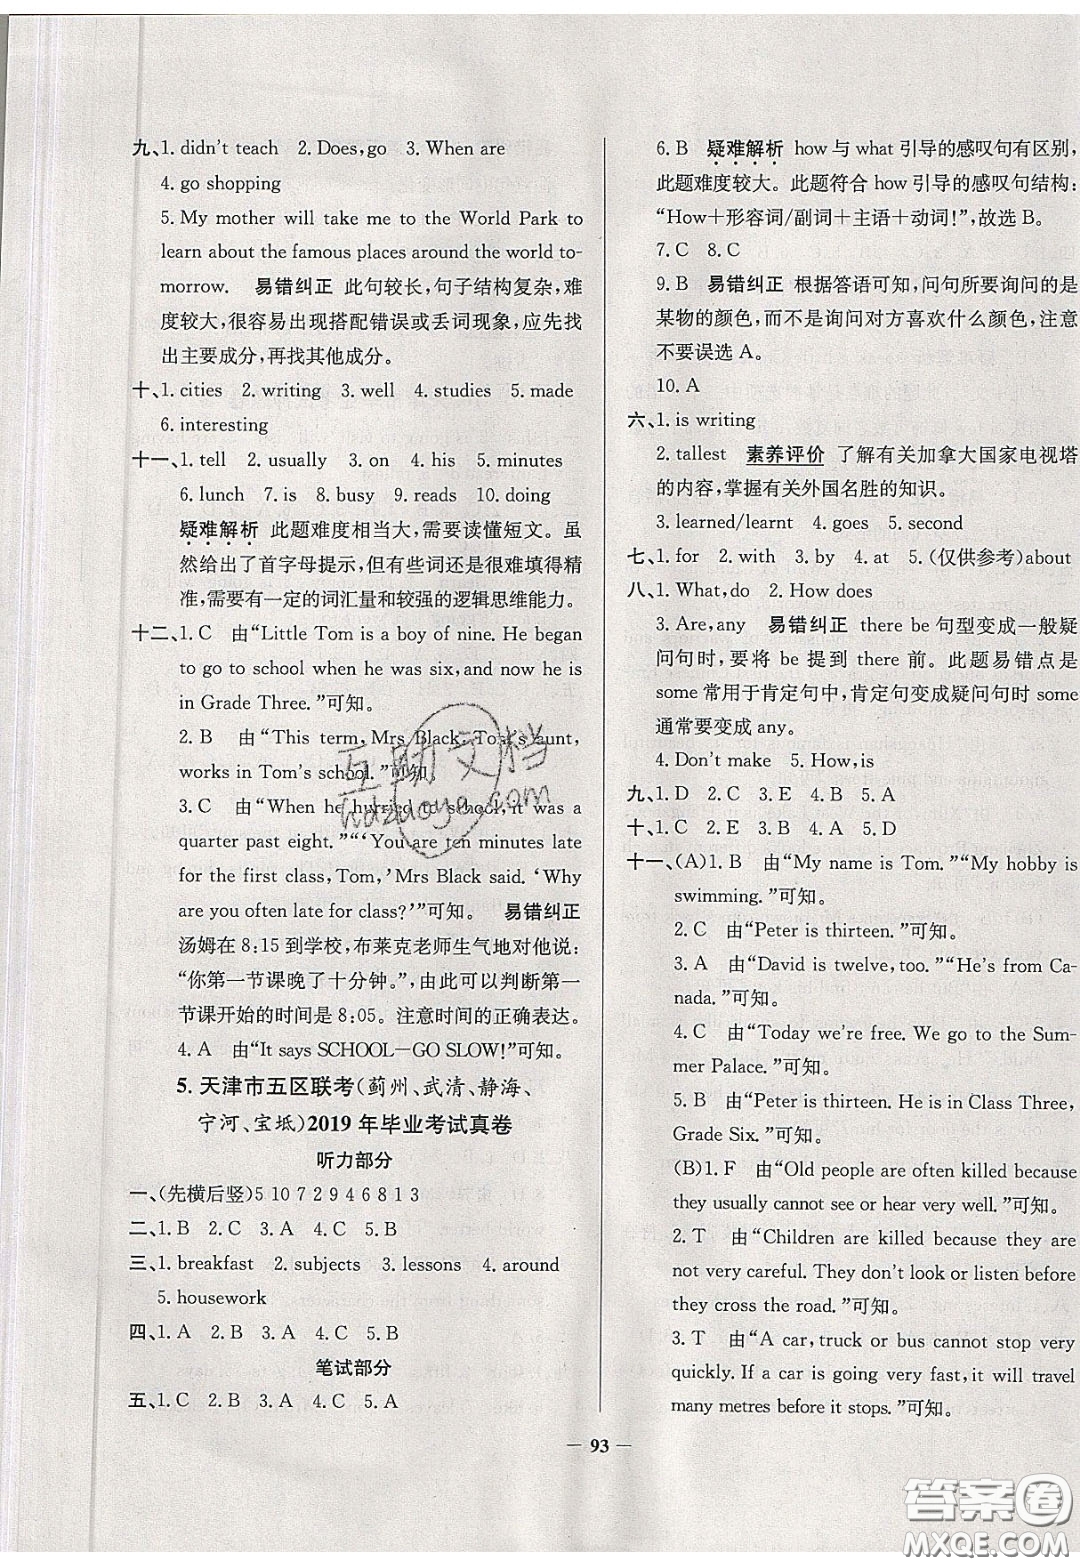 九、1. didn't teach 2. Does, go 3. When are
4. go shopping
5. My mother will take me to the World Park to
learn about the famous places around the world to-
morrow. 易错纠正 此句较长，句子结构复杂，难
度较大，很容易出现搭配错误或丢词现象，应先找
出主要成分，再找其他成分。
十、1. cities 2. writing 3. well 4. studies 5. made
6. interesting
十一、1. tell 2. usually 3. on 4. his 5. minutes
6. lunch 7. is 8. busy 9. reads 10. doing
疑难解析 此题难度相当大，需要读懂短文。虽
然给出了首字母提示，但有些词还是很难填得精
准，需要有一定的词汇量和较强的逻辑思维能力。
十二、1. C 由“Little Tom is a boy of nine. He began
to go to school when he was six, and now he is
in Grade Three.”可知。
2. B 由“This term, Mrs Black, Tom's aunt,
works in Tom's school.”可知。
3. C 由“When he hurried to school, it was a
quarter past eight.”“‘You are ten minutes late
for the first class, Tom,’ Mrs Black said. ‘Why
are you often late for class?’”可知。 易错纠正
汤姆在 8:15 到学校，布莱克老师生气地对他说：
“你第一节课晚了十分钟。”，由此可以判断第一
节课开始的时间是 8:05。注意时间的正确表达。
4. A 由“It says SCHOOL—GO SLOW!”可知。
5. 天津市五区联考（蓟州、武清、静海、
宁河、宝坻）2019 年毕业考试真卷
听力部分
一、(先横后竖)5 10 7 2 9 4 6 8 1 3
二、1. B 2. C 3. A 4. C 5. B
三、1. breakfast 2. subjects 3. lessons 4. around
5. housework
四、1. A 2. B 3. A 4. C 5. B
笔试部分
五、1. C 2. B 3. A 4. C 5. A
6. B 疑难解析 how 与 what 引导的感叹句有区别，
此题难度较大。此题符合 how 引导的感叹句结构：
“How＋形容词/副词＋主语＋动词!”，故选 B。
7. C 8. C
9. B 易错纠正 根据答语可知，问句所要询问的是
某物的颜色，而不是询问对方喜欢什么颜色，注意
不要误选 A。
10. A
六、1. is writing
2. tallest 素养评价 了解有关加拿大国家电视塔
的内容，掌握有关外国名胜的知识。
3. learned/learnt 4. goes 5. second
七、1. for 2. with 3. by 4. at 5. (仅供参考)about
八、1. What, do 2. How does
3. Are, any 易错纠正 there be 句型变成一般疑
问句时，要将 be 提到 there 前。此题易错点是
some 常用于肯定句中，肯定句变成疑问句时 some
通常要变成 any。
4. Don't make 5. How, is
九、1. D 2. C 3. E 4. B 5. A
十、1. C 2. E 3. B 4. A 5. D
十一、(A)1. B 由“My name is Tom.”“My hobby is
swimming.”可知。
2. C 由“Peter is thirteen.”可知。
3. A 由“David is twelve, too.”“He's from Ca-
nada.”可知。
4. C 由“Today we're free. We go to the Sum-
mer Palace.”可知。
5. B 由“Peter is thirteen. He is in Class Three,
Grade Six.”可知。
(B)1. F 由“Old people are often killed because
they usually cannot see or hear very well.”可知。
2. T 由“Children are killed because they are
not very careful. They don't look or listen before
they cross the road.”可知。
3. T 由“A car, truck or bus cannot stop very
quickly. If a car is going very fast, it will travel
many metres before it stops.”可知。
— 93 —
互助文档
hdzuoye.com
答案圈
MXQE.COM